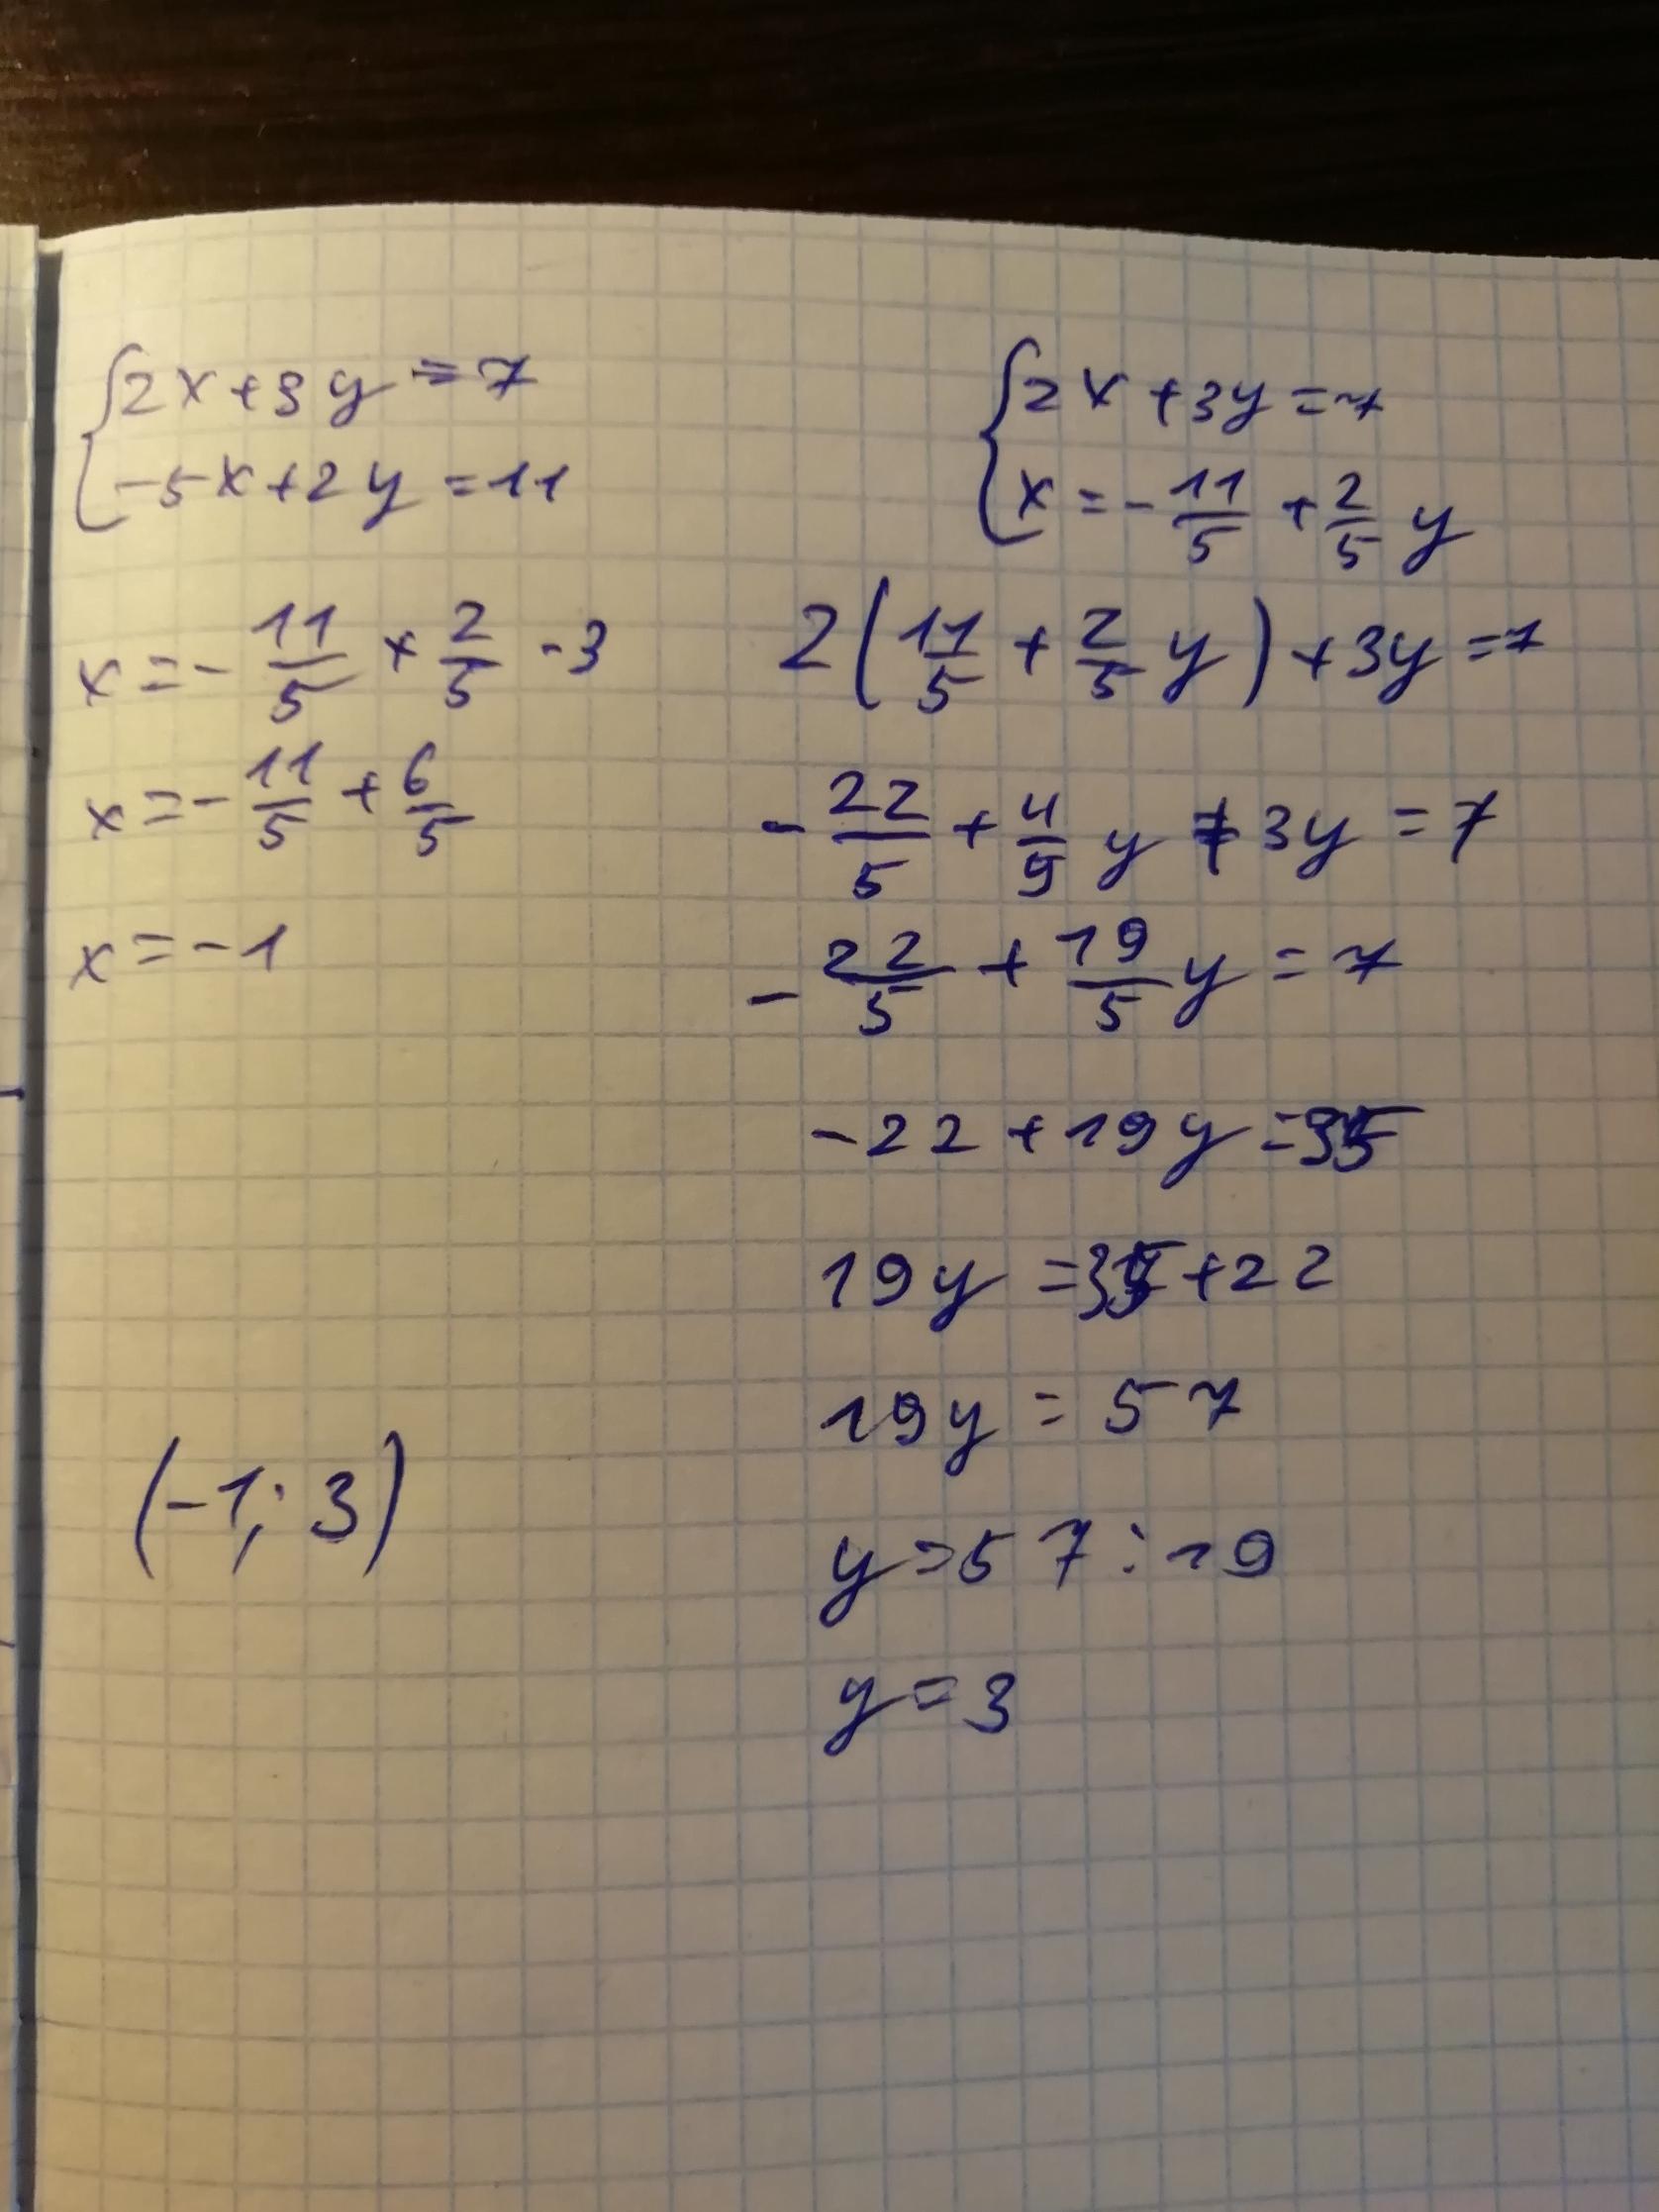 {2x+3y=7
-5x+2y=11
x=-11/5+2/5·3
x=-11/5+6/5
x=-1
(-1; 3)
{2x+3y=7
x=-11/5+2/5y
2(11/5+2/5y)+3y=7
-22/5+4/5y+3y=7
-22/5+19/5y=7
-22+19y=35
19y=35+22
19y=57
y=57:19
y=3